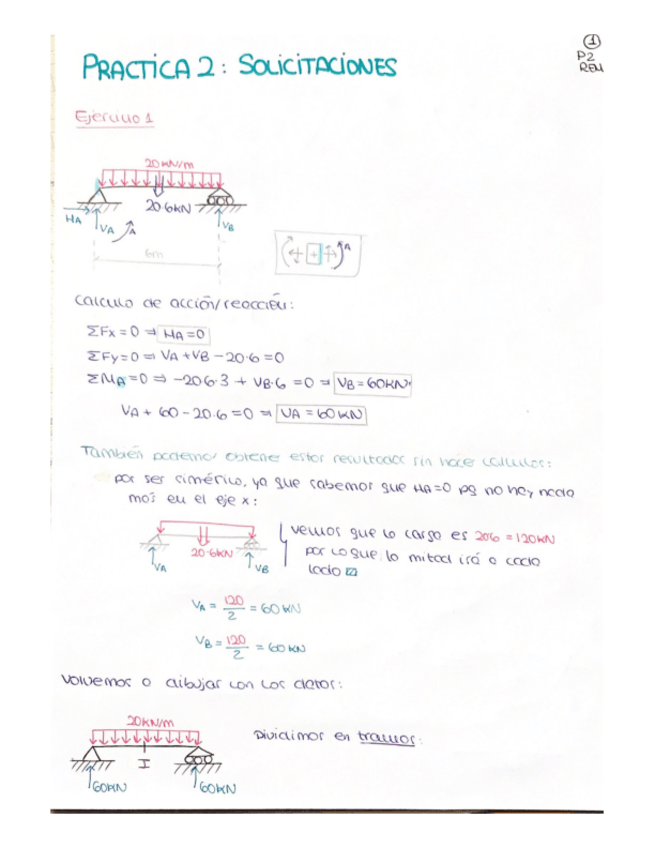 1
P2
REM
PRACTICA 2: SOLICITACIONES
Ejercicio 1
20 kN/m
20·6kN
HA
VA
A
VB
6m
A
Calculo de acción/reacción:
ΣFx = 0 ⇒ HA = 0
ΣFy = 0 ⇒ VA + VB - 20·6 = 0
ΣMA = 0 ⇒ -20·6·3 + VB·6 = 0 ⇒ VB = 60KN
VA + 60 - 20·6 = 0 ⇒ VA = 60 KN
También podemos obtener estos resultados sin hacer calculos:
por ser simérico, ya que sabemos que HA=0 pq no hay nada
mas en el eje x:
20·6KN
VA
VB
vemos que la carga es 20·6 = 120KN
por lo que la mitad irá a cada
lado
VA = 120/2 = 60 KN
VB = 120/2 = 60 KN
Volvemos a dibujar con los datos:
20KN/m
I
60KN
60KN
Dividimos en tramos: